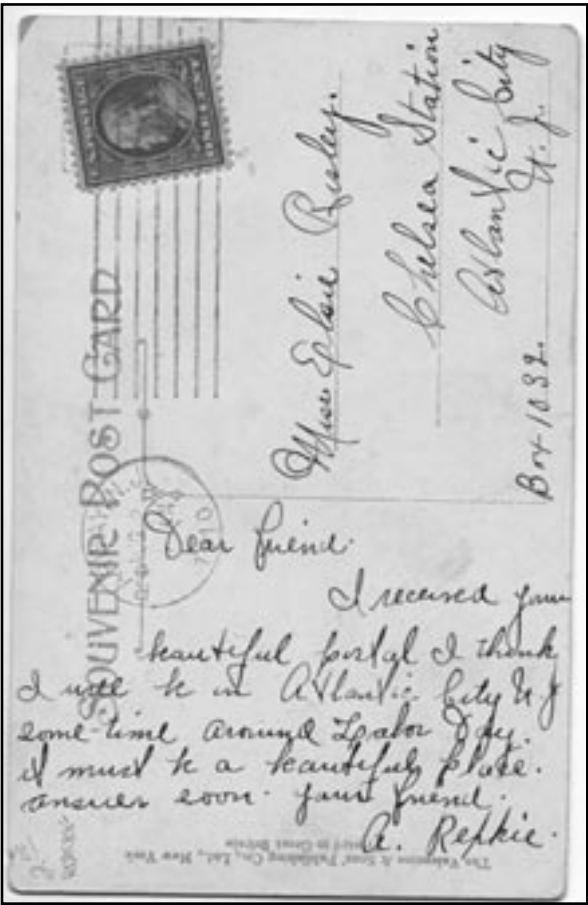 SOUVENIR POST CARD
Miss Elsie Risley.
Chelsea Station
Atlantic City
N. J.
Box 1032.
Dear friend.
I received your
beautiful postal I think
I will be in Atlantic City N J
some-time around Labor Day.
it must be a beautiful place.
answer soon. your friend.
A. Repkie.
The Valentine & Sons' Publishing Co., Ltd., New York
Printed in Great Britain